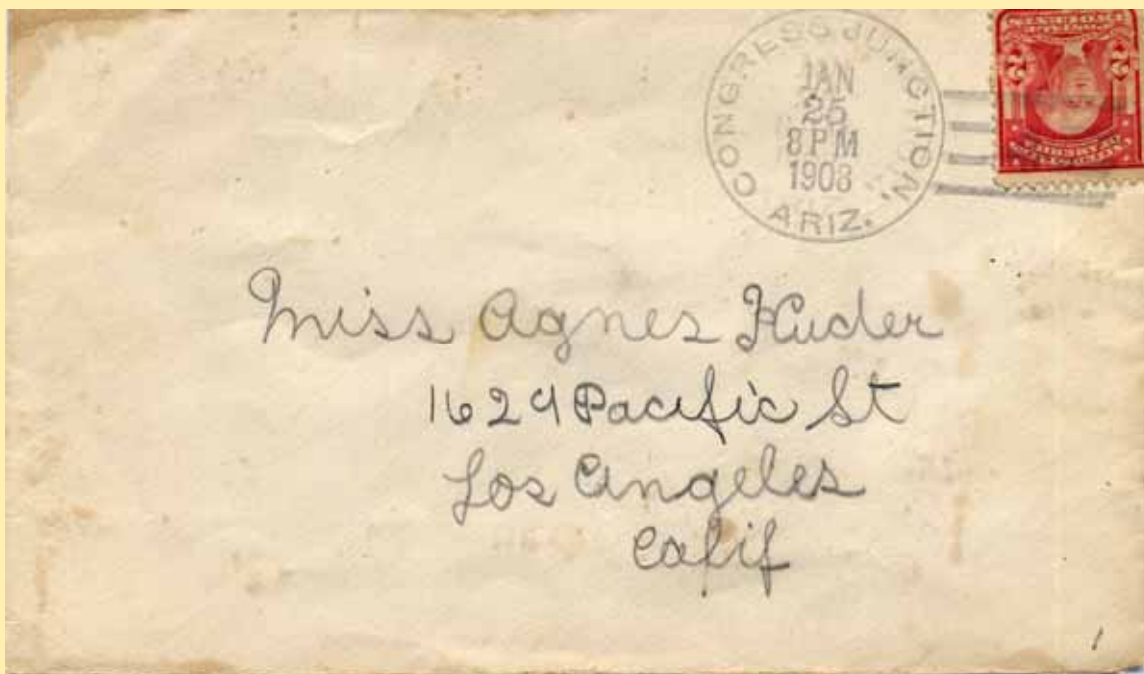 CONGRESS JUNCTION,
JAN
25
8 PM
1908
ARIZ.
2 2
Miss Agnes Kuder
1629 Pacific St
Los Angeles
Calif